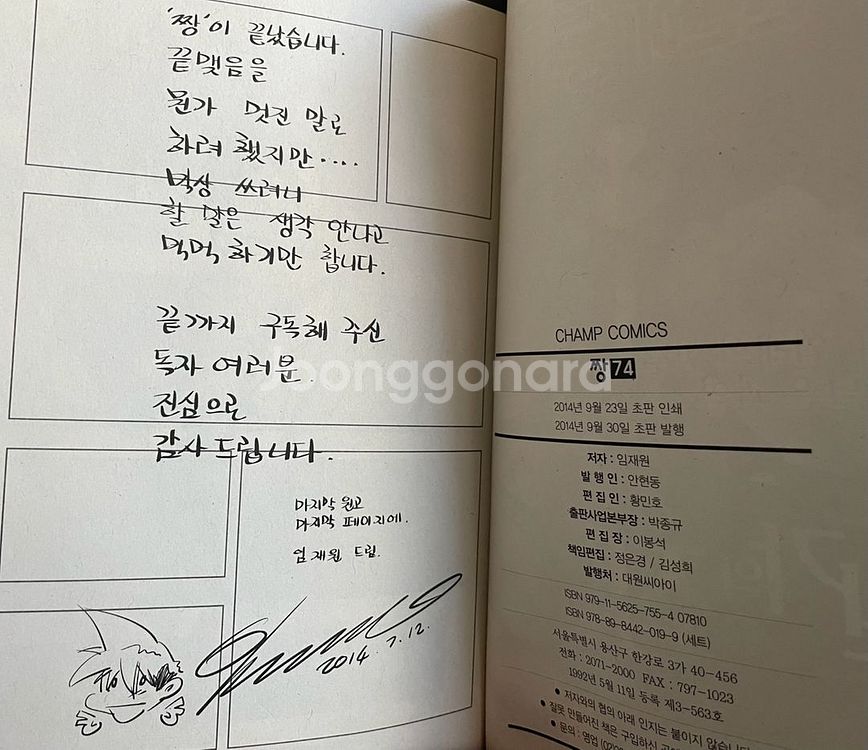 '짱'이 끝났습니다.
끝맺음을
뭔가 멋진 말로
하려 했지만····
막상 쓰려니
할 말은 생각 안나고
먹먹하기만 합니다.
끝까지 구독해 주신
독자 여러분
진심으로
감사드립니다.
마지막 원고
마지막 페이지에.
임재원 드림.
2014. 7. 12.
Joonggonara
CHAMP COMICS
짱 74
2014년 9월 23일 초판 인쇄
2014년 9월 30일 초판 발행
저자 : 임재원
발행인 : 안현동
편집인 : 황민호
출판사업본부장 : 박종규
편집장 : 이봉석
책임편집 : 정은경 / 김성희
발행처 : 대원씨아이
ISBN 979-11-5625-755-4 07810
ISBN 978-89-8442-019-9 (세트)
서울특별시 용산구 한강로 3가 40-456
전화 : 2071-2000 FAX : 797-1023
1992년 5월 11일 등록 제3-563호
● 저자와의 협의 아래 인지는 붙이지 않습니다
● 잘못 만들어진 책은 구입하신
● 문의 : 영업